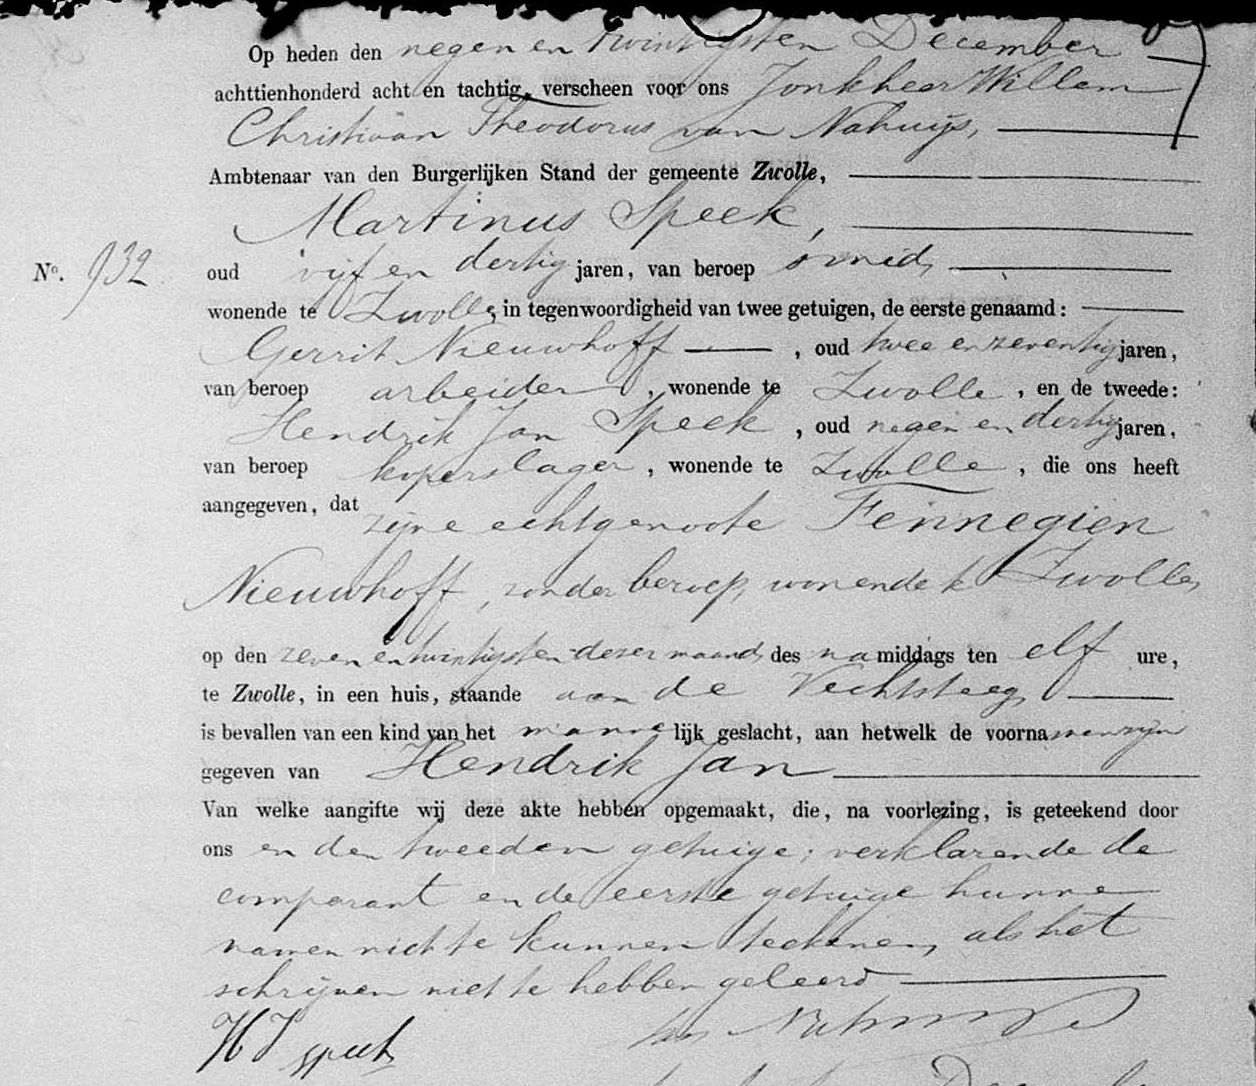 Op heden den negen en twintigsten December
achttienhonderd acht en tachtig, verscheen voor ons Jonkheer Willem
Christiaan Theodorus van Nahuijs,
Ambtenaar van den Burgerlijken Stand der gemeente Zwolle,
Martinus Speek,
No. 932
oud vijf en dertig jaren, van beroep smid,
wonende te Zwolle, in tegenwoordigheid van twee getuigen, de eerste genaamd:
Gerrit Nieuwhoff, oud twee en zeventig jaren,
van beroep arbeider, wonende te Zwolle, en de tweede:
Hendrik Jan Speek, oud negen en dertig jaren,
van beroep koperslager, wonende te Zwolle, die ons heeft
aangegeven, dat zijne echtgenoote Fennegien
Nieuwhoff, zonder beroep, wonende te Zwolle,
op den zeven en twintigsten dezer maand, des namiddags ten elf ure,
te Zwolle, in een huis, staande aan de Vechtsteeg,
is bevallen van een kind van het mannelijk geslacht, aan hetwelk de voornamen zijn
gegeven van Hendrik Jan
Van welke aangifte wij deze akte hebben opgemaakt, die, na voorlezing, is geteekend door
ons en den tweeden getuige; verklarende de
comparant en de eerste getuige hunne
namen niet te kunnen teekenen, als het
schrijven niet te hebben geleerd
HJ Speek